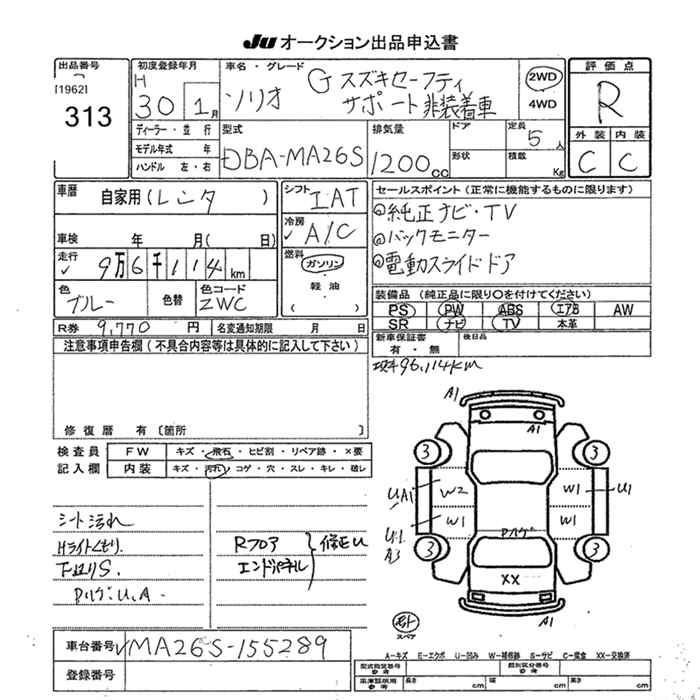 JU オークション出品申込書
出品番号
[1962]
313
初度登録年月
H
30 1月
車名・グレード
ソリオ G スズキセーフティ
サポート非装着車
2WD
4WD
評価点
R
外装 内装
C C
ディーラー・並行
モデル年式 年
ハンドル 左・右
型式
DBA-MA26S
排気量
1200cc
ドア
形状
定員
5人
積載
Kg
車歴
自家用(レンタ )
シフト
IAT
冷房
A/C
セールスポイント(正常に機能するものに限ります)
◎純正ナビ・TV
◎バックモニター
◎電動スライドドア
車検 年 月( 日)
走行
9万6千114km
燃料
ガソリン
・
軽油
・
( )
色
ブルー
色替
色コード
ZWC
装備品 (純正品に限り○を付けてください)
PS PW ABS エアB AW
SR ナビ TV 本革
R券 9,770 円
名変通知期限 月 日
新車保証書
有・無
後日品
注意事項申告欄(不具合内容等は具体的に記入して下さい)
96,114km
修復暦 有〔箇所 〕
検査員
記入欄
FW キズ・飛石・ヒビ割・リペア跡・×要
内装 キズ・汚れ・コゲ・穴・スレ・キレ・破レ
シート汚れ
Hライトくもり.
下廻りS.
Pハゲ.U.A-
Rフロア
エンドパネル
修正U
A1
A1
3 3
UA1 W2 W1 U1
U1 W1 W1
A3
Pハゲ
3 3
XX
A1
スペア
車台番号 MA26S-155289
登録番号
A-キズ E-エクボ U-凹み W-補修跡 S-サビ C-腐食 XX-交換済
型式指定番号
参考
類別区分番号
参考
車庫証明用
参考
長さ cm 幅 cm 高さ cm